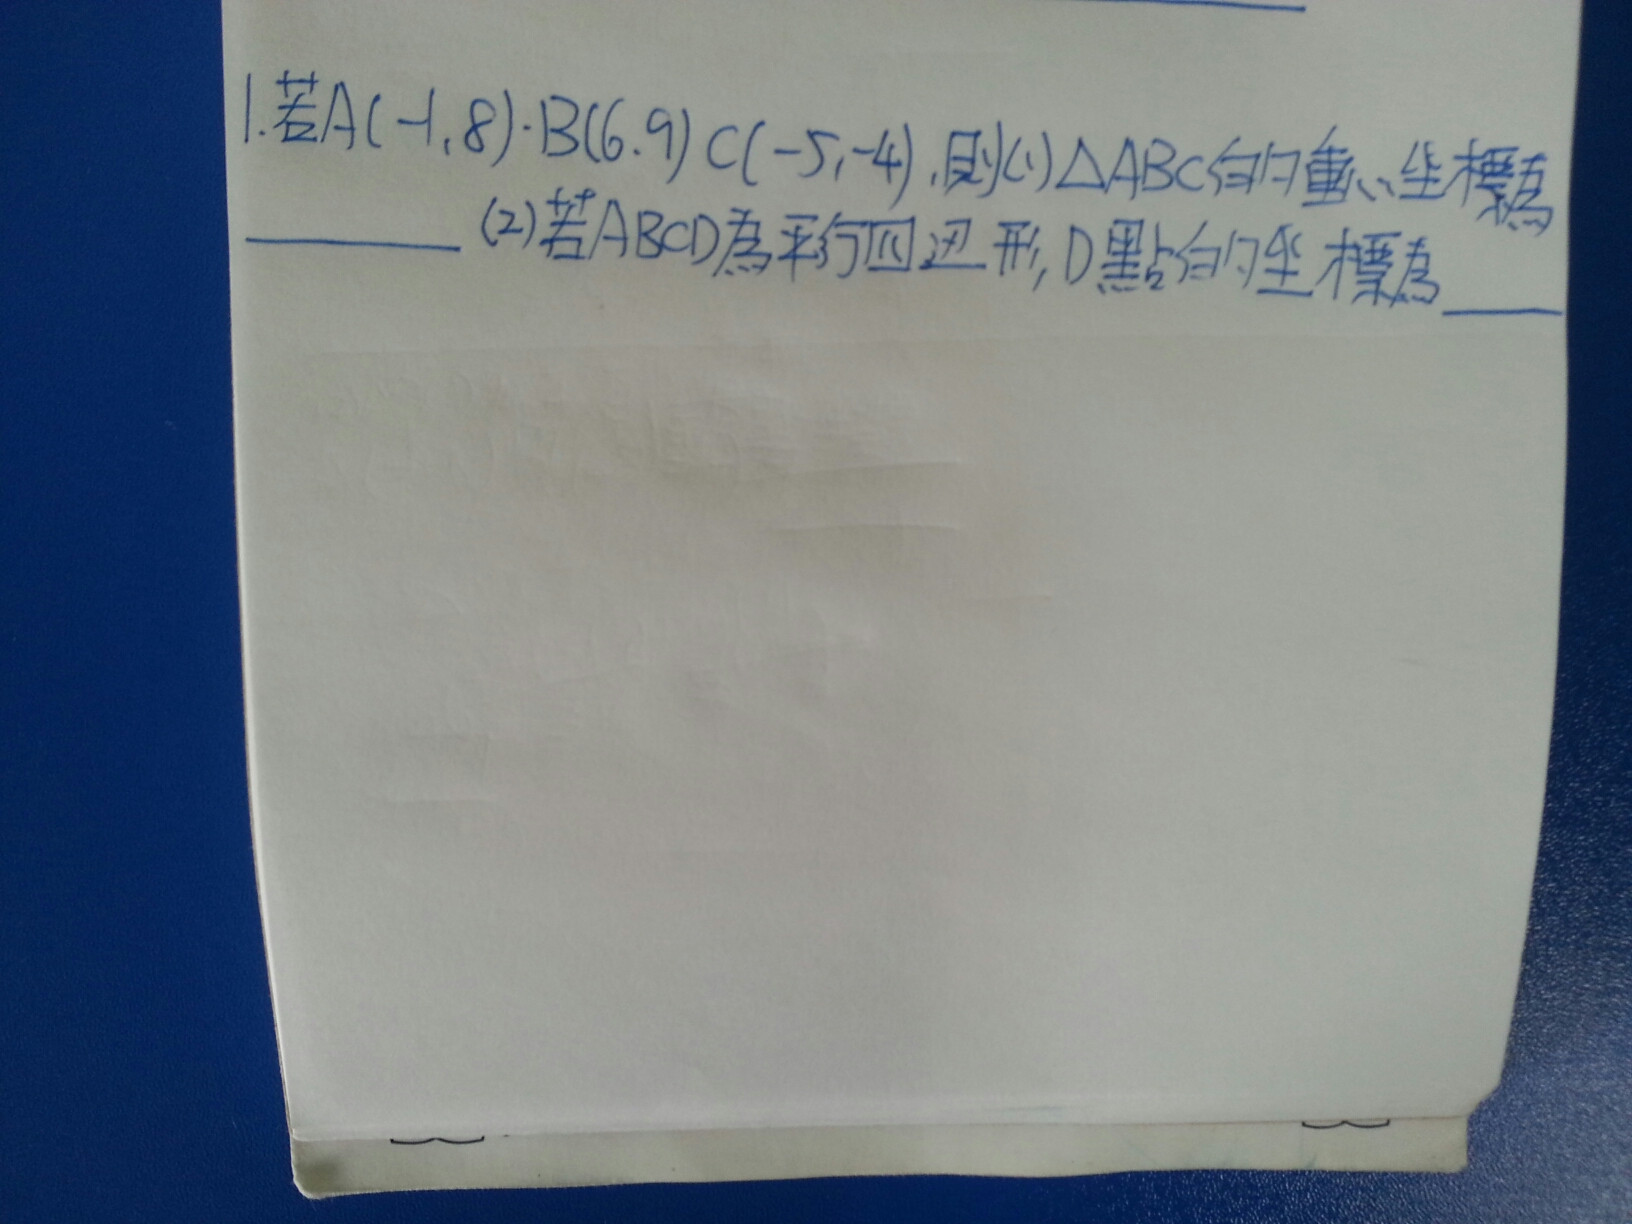 1.若A(-1,8)·B(6.9) C(-5,-4),則(1)△ABC的重心坐標為
______ (2)若ABCD為平行四边形,D點的坐標為____